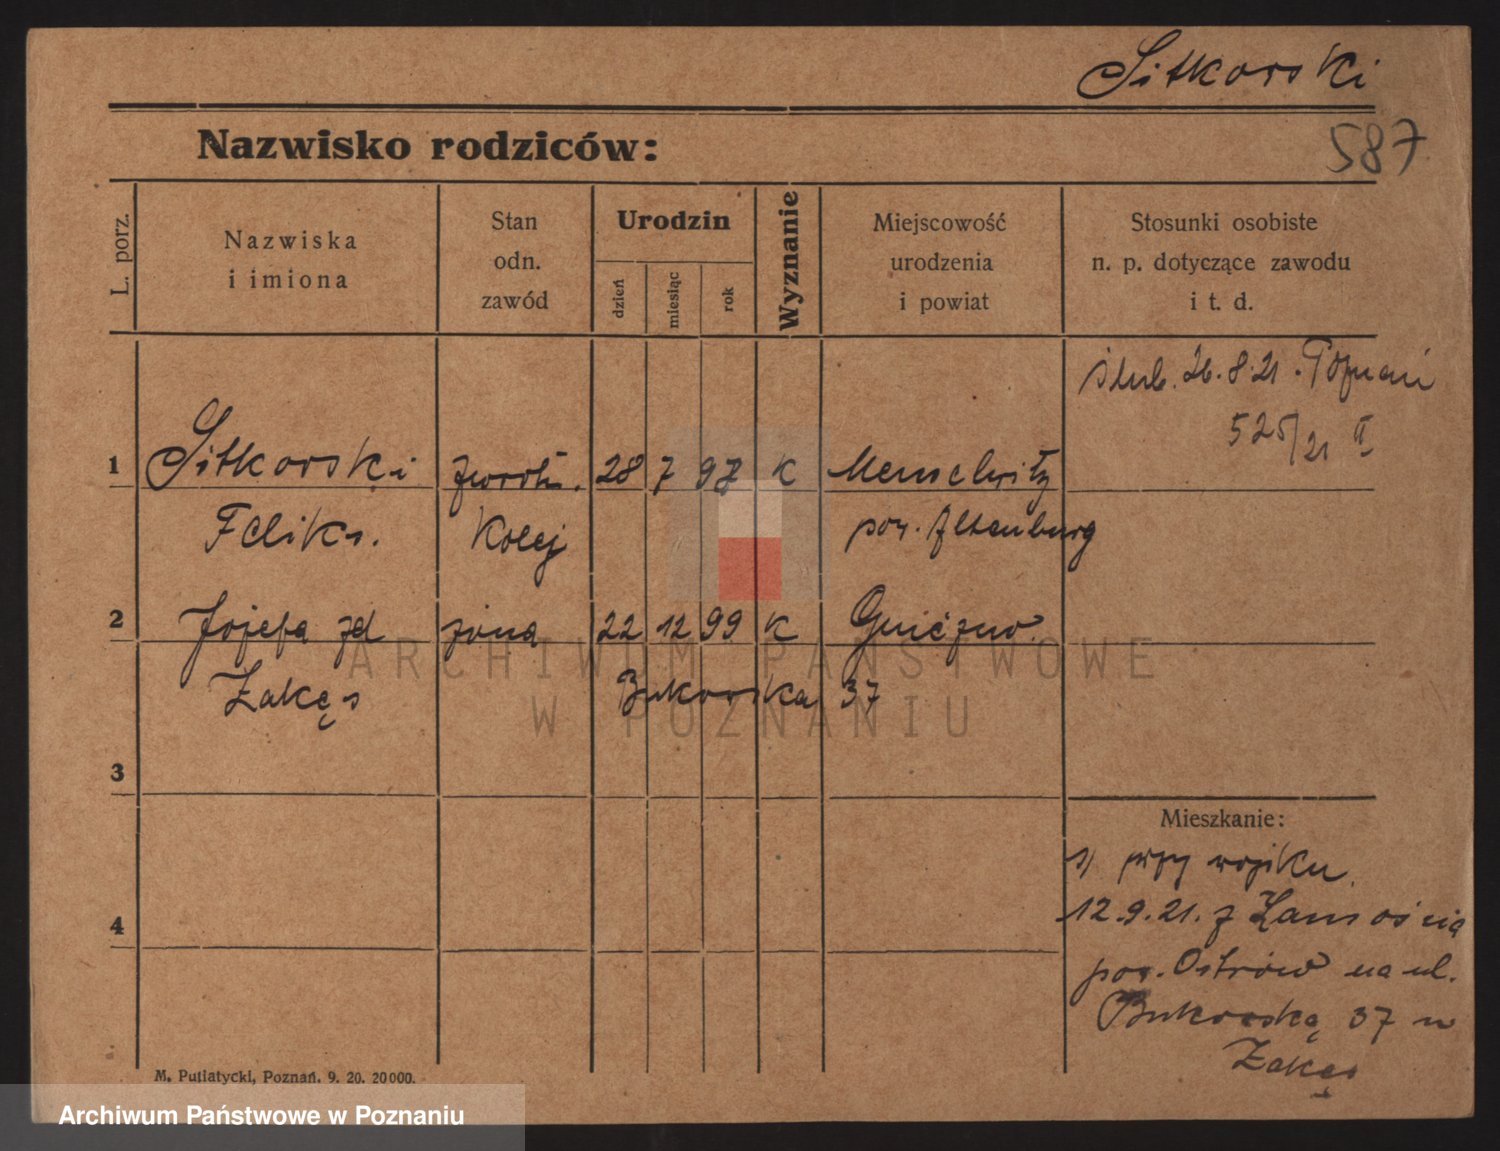 Sitkorski
587
Nazwisko rodziców:
L. porz.
Nazwiska
i imiona
Stan
odn.
zawód
Urodzin
dzień
miesiąc
rok
Wyznanie
Miejscowość
urodzenia
i powiat
Stosunki osobiste
n. p. dotyczące zawodu
i t. d.
ślub. 26.8.21. Poznań
525/21 II
1 Sitkorski zwrotn. 28 7 97 K
Feliks. Kolej pow. Altenburg
2 Józefa zd żona 22 12 99 K Gniezno
Zakęs Bukowska 37
3
4
Mieszkanie:
przy wojsku.
12.9.21. z Zamościa
pow. Ostrów na ul.
Bukowską 37 u
Zakęs
M. Putiatycki, Poznań. 9. 20. 20000.
ARCHIWUM PAŃSTWOWE
W POZNANIU
Archiwum Państwowe w Poznaniu